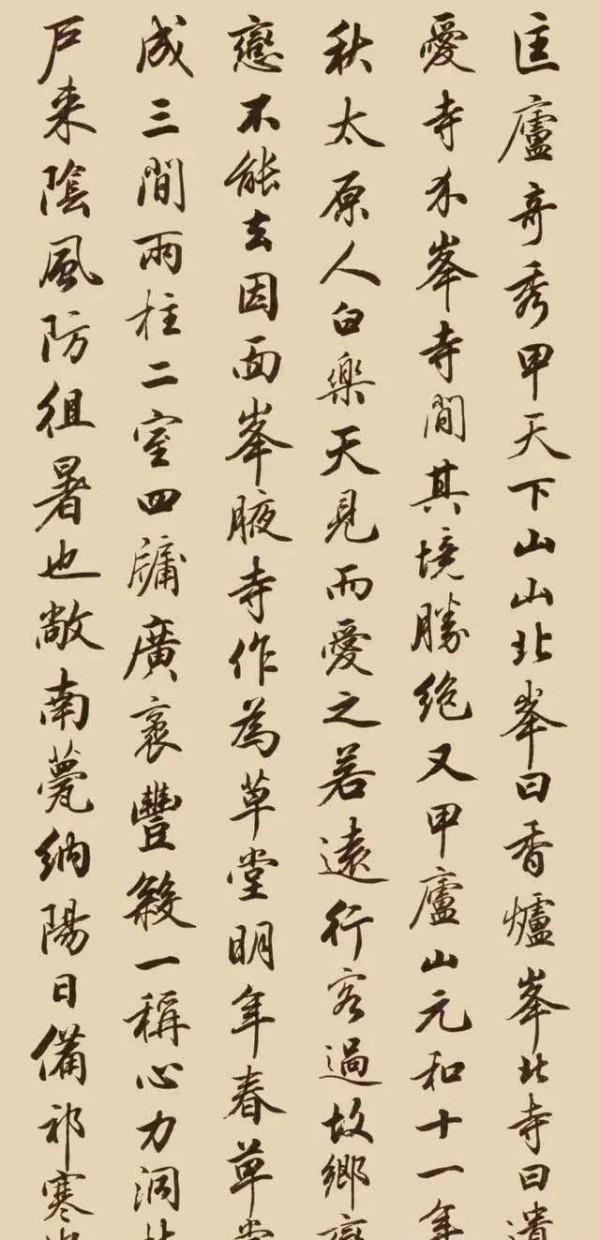 匡廬奇秀甲天下山山北峯曰香爐峯北寺曰遺
愛寺介峯寺間其境勝絶又甲廬山元和十一年
秋太原人白樂天見而愛之若遠行客過故鄉戀
戀不能去因面峯腋寺作為草堂明年春草堂
成三間兩柱二室四牖廣袤豐殺一稱心力洞北
戶来陰風防徂暑也敞南甍納陽日備祁寒也